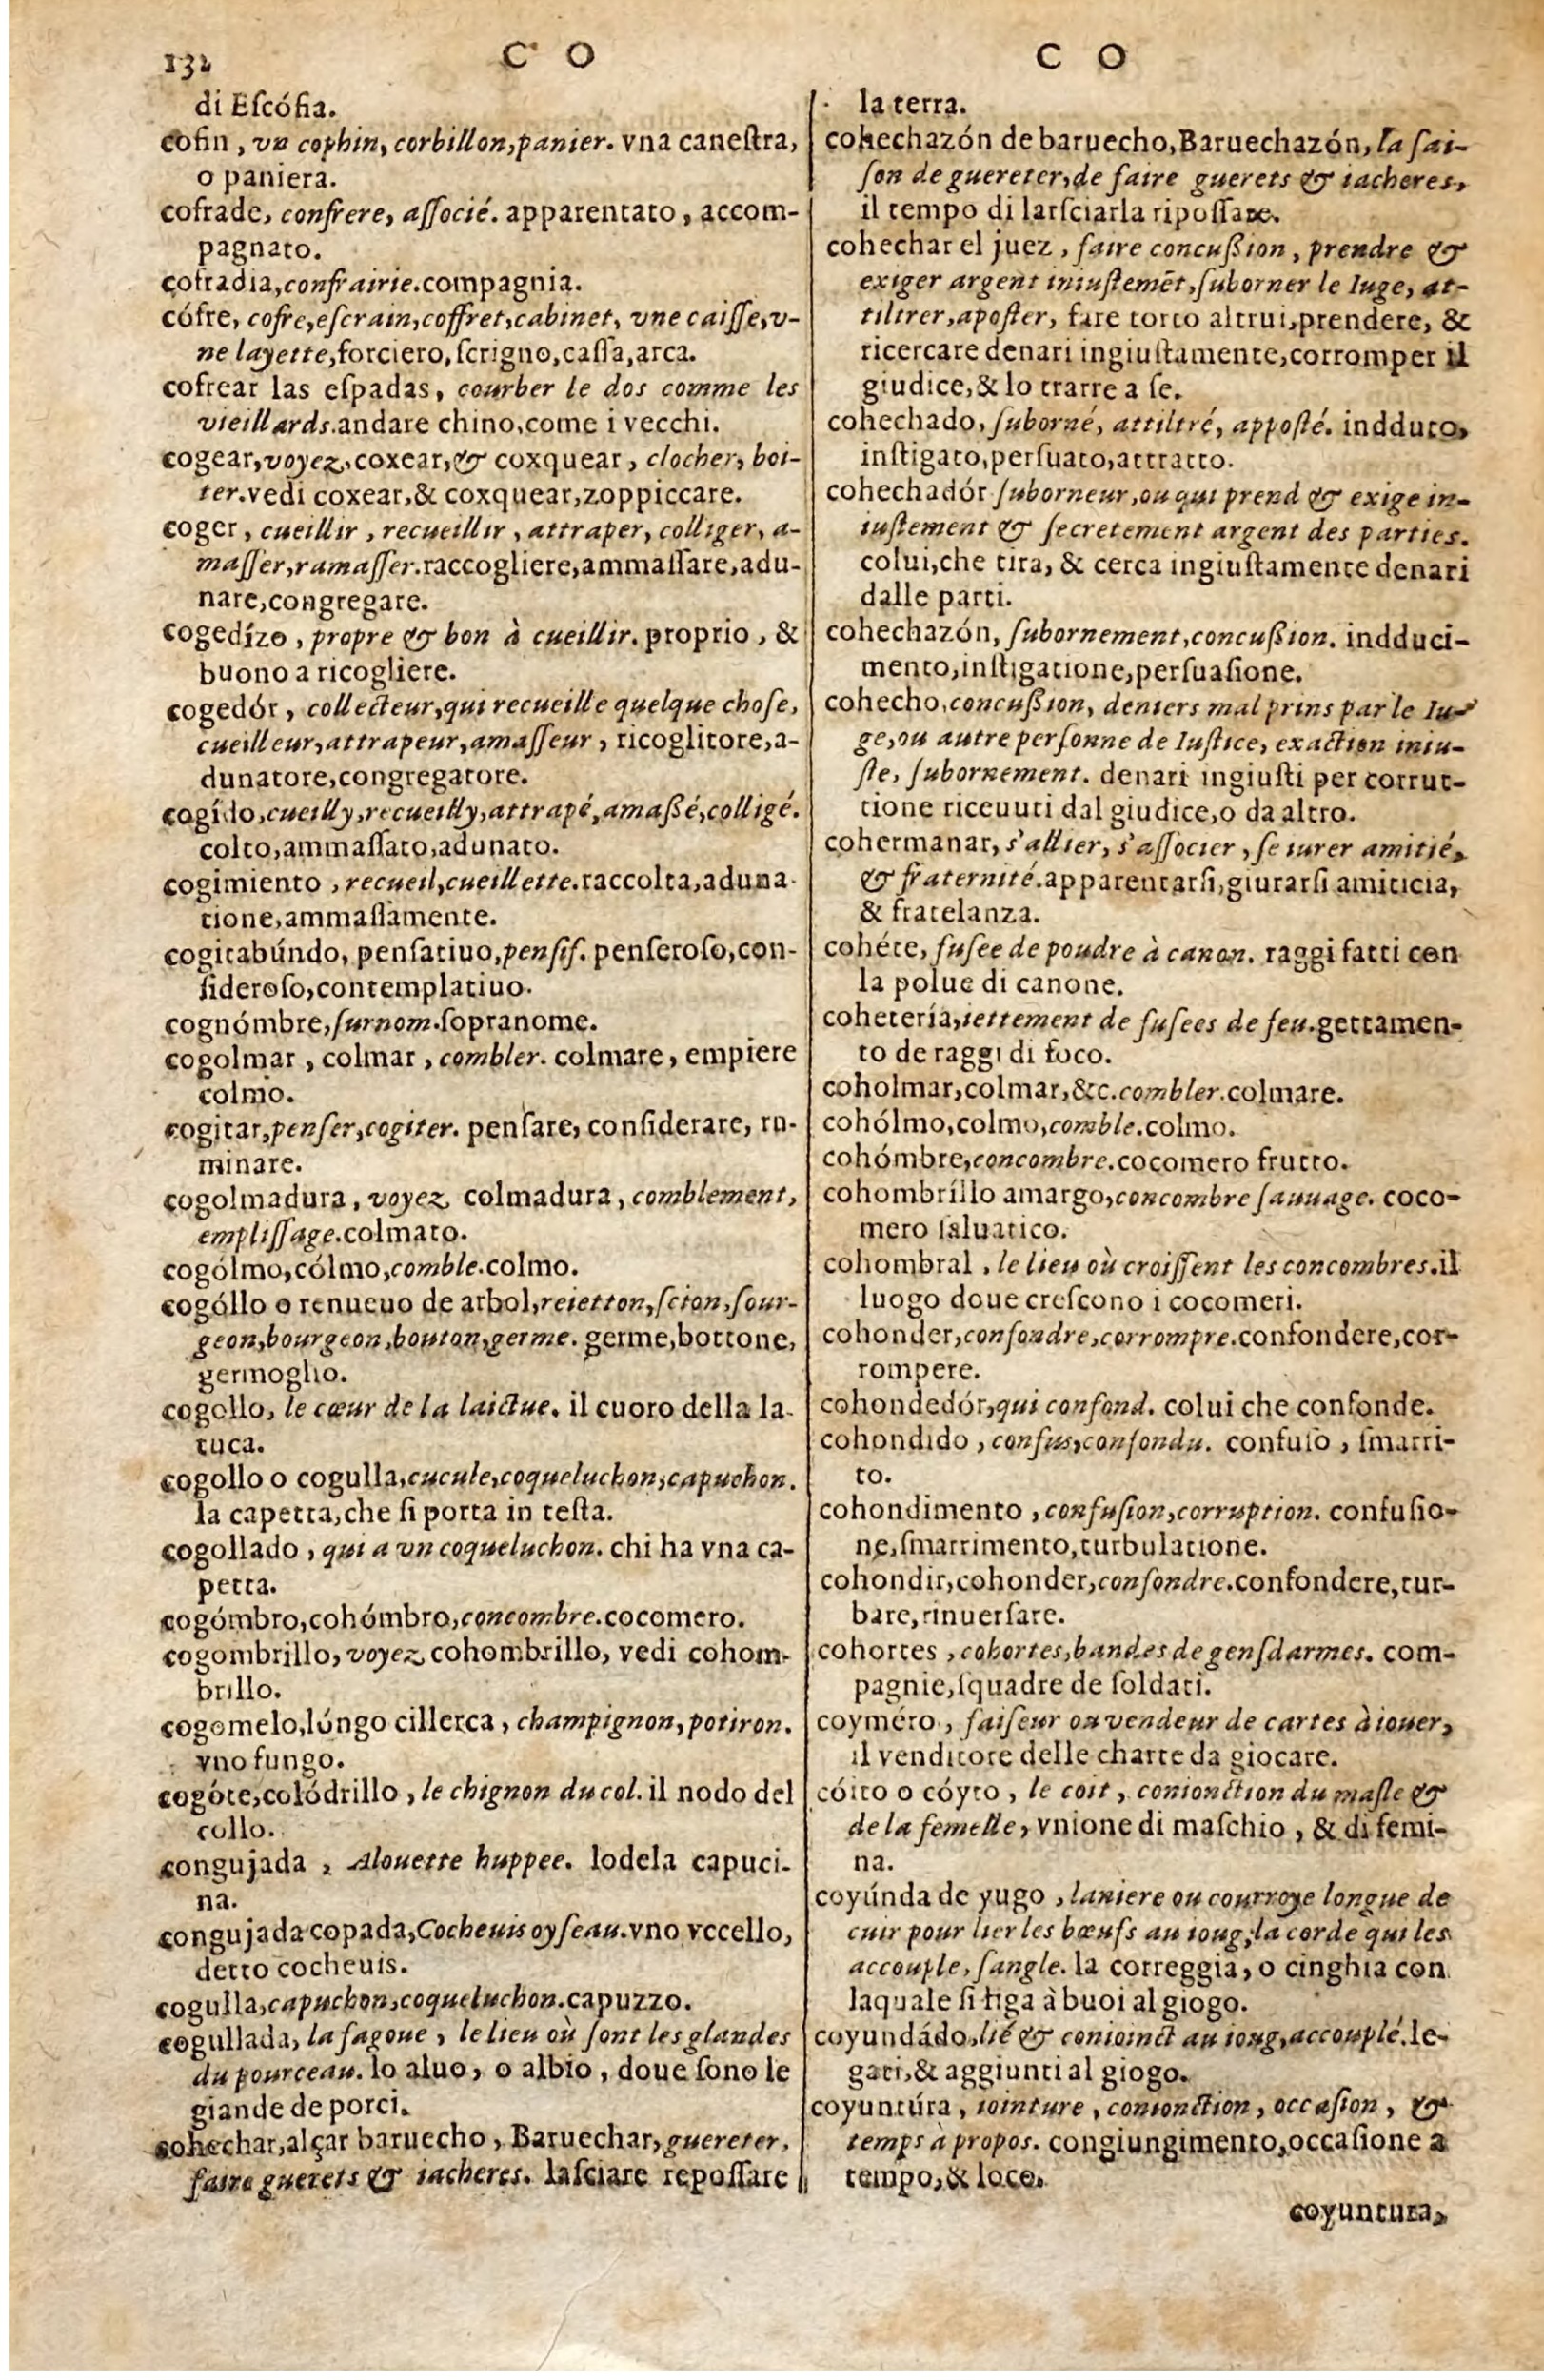 132
C O
di Eſcófia.
cofin, vn cophin, corbillon, panier. vna caneſtra,
o paniera.
cofrade, confrere, aſſocié. apparentato, accom-
pagnato.
cofradia, confrairie. compagnia.
cófre, cofre, eſcrain, coffret, cabinet, vne caiſſe, v-
ne layette, forciero, ſcrigno, caſſa, arca.
cofrear las eſpadas, courber le dos comme les
vieillards. andare chino, come i vecchi.
cogear, voyez, coxear, & coxquear, clocher, boi-
ter. vedi coxear, & coxquear, zoppiccare.
coger, cueillir, recueillir, attraper, colliger, a-
maſſer, ramaſſer. raccogliere, ammaſſare, adu-
nare, congregare.
cogedízo, propre & bon à cueillir. proprio, &
buono a ricogliere.
cogedór, collecteur, qui recueille quelque choſe,
cueilleur, attrapeur, amaſſeur, ricoglitore, a-
dunatore, congregatore.
cogído, cueilly, recueilly, attrapé, amaßé, colligé.
colto, ammaſſato, adunato.
cogimiento, recueil, cueillette. raccolta, aduna
tione, ammaſſamente.
cogitabúndo, penſatiuo, penſif. penſeroſo, con-
ſideroſo, contemplatiuo.
cognómbre, ſurnom. ſopranome.
cogolmar, colmar, combler. colmare, empiere
colmo.
cogitar, penſer, cogiter. penſare, conſiderare, ru-
minare.
cogolmadura, voyez colmadura, comblement,
empliſſage. colmato.
cogólmo, cólmo, comble. colmo.
cogóllo o renueuo de arbol, reietton, ſcion, ſour-
geon, bourgeon, bouton, germe. germe, bottone,
germoglio.
cogollo, le cœur de la laictue. il cuoro della la-
tuca.
cogollo o cogulla, cucule, coqueluchon, capuchon.
la capetta, che ſi porta in teſta.
cogollado, qui a vn coqueluchon. chi ha vna ca-
petta.
cogómbro, cohómbro, concombre. cocomero.
cogombrillo, voyez cohombrillo, vedi cohom-
brillo.
cogomelo, lúngo cillerca, champignon, potiron.
vno fungo.
cogóte, colódrillo, le chignon du col. il nodo del
collo.
congujada, Alouette huppee. lodela capuci-
na.
congujada copada, Cocheuis oyſeau. vno vccello,
detto cocheuis.
cogulla, capuchon, coqueluchon. capuzzo.
cogullada, la fagoue, le lieu où ſont les glandes
du pourceau. lo aluo, o albio, doue ſono le
giande de porci.
cohechar, alçar baruecho, Baruechar, guereter,
faire guerets & iacheres. laſciare repoſſare
C O
la terra.
cohechazón de baruecho, Baruechazón, la ſai-
ſon de guereter, de faire guerets & iacheres,
il tempo di larſciarla ripoſſare.
cohechar el juez, faire concußion, prendre &
exiger argent iniuſtemēt, ſuborner le Iuge, at-
tiltrer, apoſter, fare torto altrui, prendere, &
ricercare denari ingiuſtamente, corromper il
giudice, & lo trarre a ſe.
cohechado, ſuborné, attiltré, appoſté. indduto,
inſtigato, perſuato, attratto.
cohechadór ſuborneur, ou qui prend & exige in-
iuſtement & ſecretement argent des parties.
colui, che tira, & cerca ingiuſtamente denari
dalle parti.
cohechazón, ſubornement, concußion. indduci-
mento, inſtigatione, perſuaſione.
cohecho, concußion, deniers mal prins par le Iu-
ge, ou autre perſonne de Iuſtice, exaction iniu-
ſte, ſubornement. denari ingiuſti per corrut-
tione riceuuti dal giudice, o da altro.
cohermanar, s'allier, s'aſſocier, ſe iurer amitié,
& fraternité. apparentarſi, giurarſi amiticia,
& fratelanza.
cohéte, fuſee de poudre à canon. raggi fatti con
la polue di canone.
cohetería, iettement de fuſees de feu. gettamen-
to de raggi di foco.
coholmar, colmar, &c. combler. colmare.
cohólmo, colmo, comble. colmo.
cohómbre, concombre. cocomero frutto.
cohombríllo amargo, concombre ſauuage. coco-
mero ſaluatico.
cohombral, le lieu où croiſſent les concombres. il
luogo doue creſcono i cocomeri.
cohonder, confondre, corrompre. confondere, cor-
rompere.
cohondedór, qui confond. colui che confonde.
cohondido, confus, confondu. confuſo, ſmarri-
to.
cohondimento, confuſion, corruption. confuſio-
ne, ſmarrimento, turbulatione.
cohondir, cohonder, confondre. confondere, tur-
bare, rinuerſare.
cohortes, cohortes, bandes de genſdarmes. com-
pagnie, ſquadre de ſoldati.
coyméro, faiſeur ou vendeur de cartes à iouer,
il venditore delle charte da giocare.
cóito o cóyto, le coit, conionction du maſle &
de la femelle, vnione di maſchio, & di femi-
na.
coyúnda de yugo, laniere ou courroye longue de
cuir pour lier les bœufs au ioug, la corde qui les
accouple, ſangle. la correggia, o cinghia con
laquale ſi liga à buoi al giogo.
coyundádo, lié & conioinct au ioug, accouplé. le-
gati, & aggiunti al giogo.
coyuntúra, iointure, conionction, occaſion, &
temps a propos. congiungimento, occaſione a
tempo, & loco.
coyuntura,